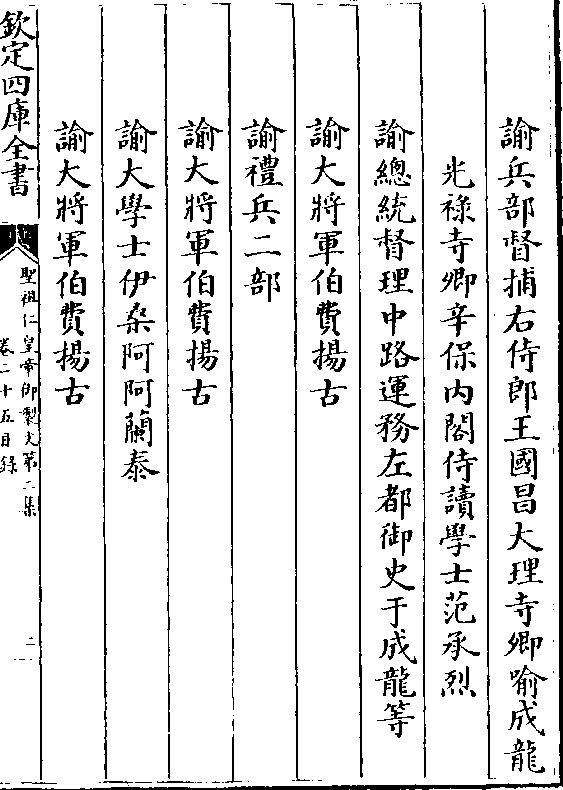 諭兵部督捕右侍郎王國昌大理寺卿喻成龍
光祿寺卿辛保内閣侍讀學士范承烈
諭總統督理中路運務左都御史于成龍等
諭大將軍伯費揚古
諭禮兵二部
諭大將軍伯費揚古
諭大學士伊桑阿阿蘭泰
諭大將軍伯費揚古
欽定四庫全書
聖祖仁皇帝御製文第二集
卷二十五目錄
二